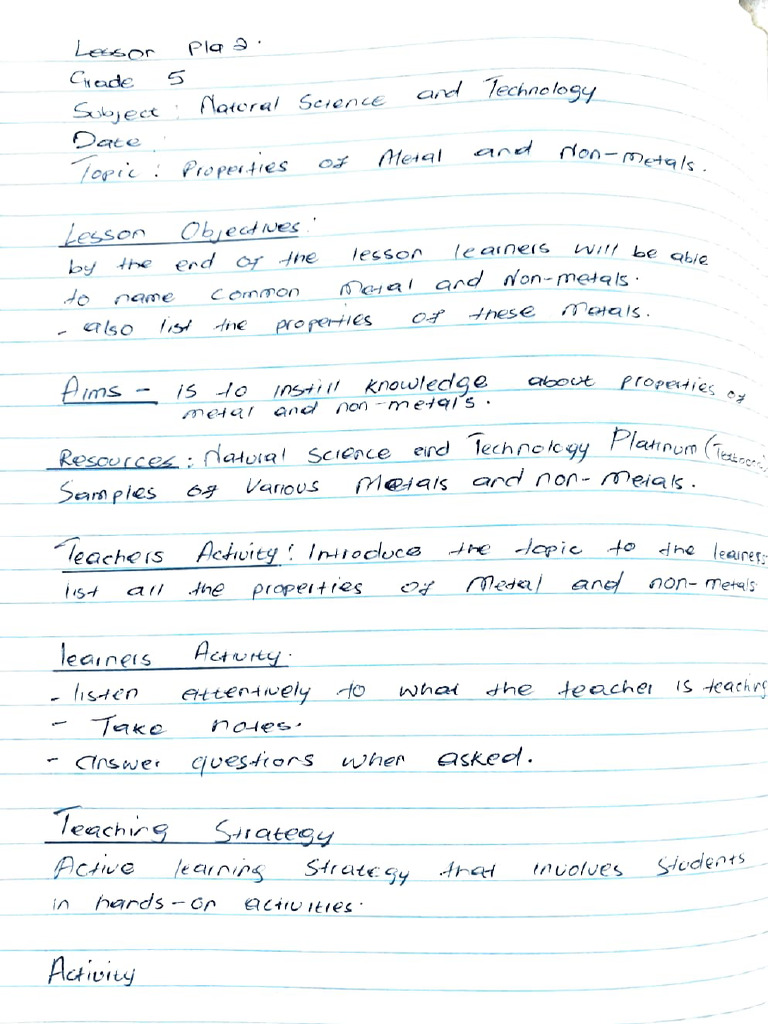 Lesson Pla 2.
Grade 5
Subject: Natural Science and Technology
Date:
Topic: Properties of Metal and Non-metals.
Lesson Objectives:
by the end of the lesson learners will be able
to name common Metal and Non-metals.
- also list the properties of these Metals.
Aims - is to instill knowledge about properties of
metal and non-metals.
Resources: Natural Science and Technology Platinum (Textbook)
Samples of Various Metals and non-metals.
Teachers Activity: Introduce the topic to the learners
list all the properties of Metal and non-metals
learners Activity.
- listen attentively to what the teacher is teaching
- Take notes.
- answer questions when asked.
Teaching Strategy
Active learning Strategy that involves Students
in hands-on activities.
Activity